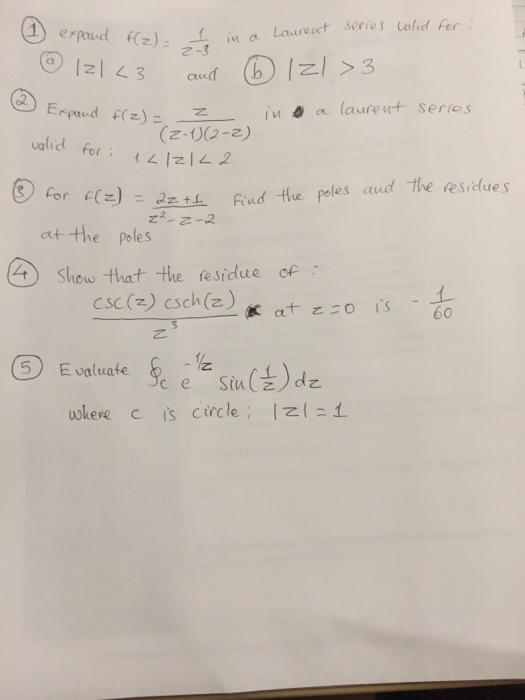 ① expand f(z) = 1/(z-3) in a Laurent series valid for :
ⓐ |z| < 3 and ⓑ |z| > 3
② Expand f(z) = z/((z-1)(2-z)) in a laurent series
valid for : 1 < |z| < 2
③ for f(z) = (2z+1)/(z²-z-2) find the poles and the residues
at the poles
④ Show that the residue of :
(csc(z) csch(z))/z³ at z=0 is - 1/60
⑤ Evaluate ∮c e^(-1/z) sin(1/z) dz
where c is circle ; |z| = 1